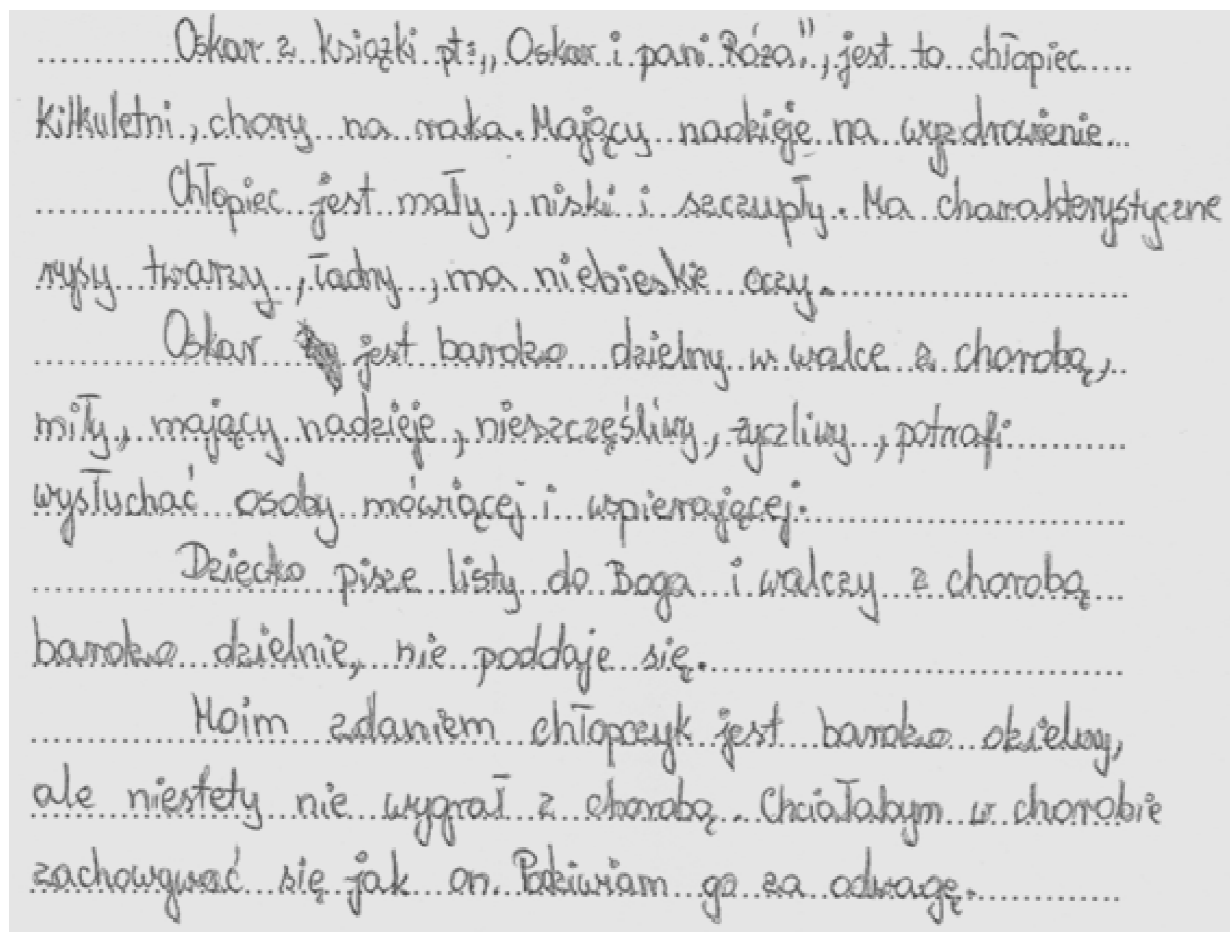 Oskar z książki pt: „Oskar i pani Róża", jest to chłopiec
kilkuletni, chory na raka. Mający nadzieję na wyzdrowienie.
Chłopiec jest mały, niski i szczupły. Ma charakterystyczne
rysy twarzy, ładny, ma niebieskie oczy.
Oskar jest bardzo dzielny w walce z chorobą,
miły, mający nadzieję, nieszczęśliwy, życzliwy, potrafi
wysłuchać osoby mówiącej i wspierającej.
Dziecko pisze listy do Boga i walczy z chorobą
bardzo dzielnie, nie poddaje się.
Moim zdaniem chłopczyk jest bardzo dzielny,
ale niestety nie wygrał z chorobą. Chciałabym w chorobie
zachowywać się jak on. Podziwiam go za odwagę.